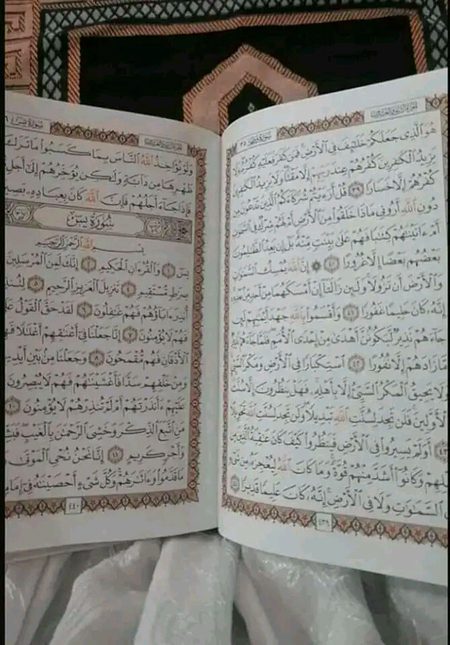 سُورَةُ فَاطِرٍ ٣٥
هُوَ ٱلَّذِى جَعَلَكُمْ خَلَٰٓئِفَ فِى ٱلْأَرْضِ فَمَن كَفَرَ فَعَلَيْهِ كُفْرُهُۥ وَلَا
يَزِيدُ ٱلْكَٰفِرِينَ كُفْرُهُمْ عِندَ رَبِّهِمْ إِلَّا مَقْتًا وَلَا يَزِيدُ ٱلْكَٰفِرِينَ
كُفْرُهُمْ إِلَّا خَسَارًا ٣٩ قُلْ أَرَءَيْتُمْ شُرَكَآءَكُمُ ٱلَّذِينَ تَدْعُونَ مِن
دُونِ ٱللَّهِ أَرُونِى مَاذَا خَلَقُوا۟ مِنَ ٱلْأَرْضِ أَمْ لَهُمْ شِرْكٌ فِى
أَمْ ءَاتَيْنَٰهُمْ كِتَٰبًا فَهُمْ عَلَىٰ بَيِّنَتٍ مِّنْهُ بَلْ إِن يَعِدُ ٱلظَّٰلِمُونَ
بَعْضُهُم بَعْضًا إِلَّا غُرُورًا ٤٠ إِنَّ ٱللَّهَ يُمْسِكُ
وَٱلْأَرْضَ أَن تَزُولَا وَلَئِن زَالَتَآ إِنْ أَمْسَكَهُمَا مِنْ أَحَدٍ مِّنۢ بَعْدِهِۦٓ
إِنَّهُۥ كَانَ حَلِيمًا غَفُورًا ٤١ وَأَقْسَمُوا۟ بِٱللَّهِ جَهْدَ أَيْمَٰنِهِمْ لَئِن
جَآءَهُمْ نَذِيرٌ لَّيَكُونُنَّ أَهْدَىٰ مِنْ إِحْدَى ٱلْأُمَمِ فَلَمَّا جَآءَهُمْ
مَّا زَادَهُمْ إِلَّا نُفُورًا ٤٢ ٱسْتِكْبَارًا فِى ٱلْأَرْضِ وَمَكْرَ ٱلسَّيِّئِ
وَلَا يَحِيقُ ٱلْمَكْرُ ٱلسَّيِّئُ إِلَّا بِأَهْلِهِۦ فَهَلْ يَنظُرُونَ إِلَّا
ٱلْأَوَّلِينَ فَلَن تَجِدَ لِسُنَّتِ ٱللَّهِ تَبْدِيلًا وَلَن تَجِدَ لِسُنَّتِ ٱللَّهِ تَحْوِيلًا
٤٣ أَوَلَمْ يَسِيرُوا۟ فِى ٱلْأَرْضِ فَيَنظُرُوا۟ كَيْفَ كَانَ عَٰقِبَةُ ٱلَّذِينَ
قَبْلِهِمْ وَكَانُوٓا۟ أَشَدَّ مِنْهُمْ قُوَّةً وَمَا كَانَ ٱللَّهُ لِيُعْجِزَهُۥ مِن
ٱلسَّمَٰوَٰتِ وَلَا فِى ٱلْأَرْضِ إِنَّهُۥ كَانَ عَلِيمًا قَدِيرًا ٤٤
٤٣٩
وَلَوْ يُؤَاخِذُ ٱللَّهُ ٱلنَّاسَ بِمَا كَسَبُوا۟ مَا تَرَكَ
ظَهْرِهَا مِن دَآبَّةٍ وَلَٰكِن يُؤَخِّرُهُمْ إِلَىٰٓ أَجَلٍ
فَإِذَا جَآءَ أَجَلُهُمْ فَإِنَّ ٱللَّهَ كَانَ بِعِبَادِهِۦ بَصِيرًۢا
سُورَةُ يسٓ
بِسْمِ ٱللَّهِ ٱلرَّحْمَٰنِ ٱلرَّحِيمِ
يسٓ ١ وَٱلْقُرْءَانِ ٱلْحَكِيمِ ٢ إِنَّكَ لَمِنَ ٱلْمُرْسَلِينَ
صِرَٰطٍ مُّسْتَقِيمٍ ٤ تَنزِيلَ ٱلْعَزِيزِ ٱلرَّحِيمِ ٥ لِتُنذِرَ
أُنذِرَ ءَابَآؤُهُمْ فَهُمْ غَٰفِلُونَ ٦ لَقَدْ حَقَّ ٱلْقَوْلُ عَلَىٰٓ
فَهُمْ لَا يُؤْمِنُونَ ٧ إِنَّا جَعَلْنَا فِىٓ أَعْنَٰقِهِمْ أَغْلَٰلًا
ٱلْأَذْقَانِ فَهُم مُّقْمَحُونَ ٨ وَجَعَلْنَا مِنۢ بَيْنِ أَيْدِيهِمْ
وَمِنْ خَلْفِهِمْ سَدًّا فَأَغْشَيْنَٰهُمْ فَهُمْ لَا يُبْصِرُونَ
عَلَيْهِمْ ءَأَنذَرْتَهُمْ أَمْ لَمْ تُنذِرْهُمْ لَا يُؤْمِنُونَ ١٠
مَنِ ٱتَّبَعَ ٱلذِّكْرَ وَخَشِىَ ٱلرَّحْمَٰنَ بِٱلْغَيْبِ
وَأَجْرٍ كَرِيمٍ ١١ إِنَّا نَحْنُ نُحْىِ ٱلْمَوْتَىٰ
مَا قَدَّمُوا۟ وَءَاثَٰرَهُمْ وَكُلَّ شَىْءٍ أَحْصَيْنَٰهُ فِىٓ إِمَامٍ
٤٤٠